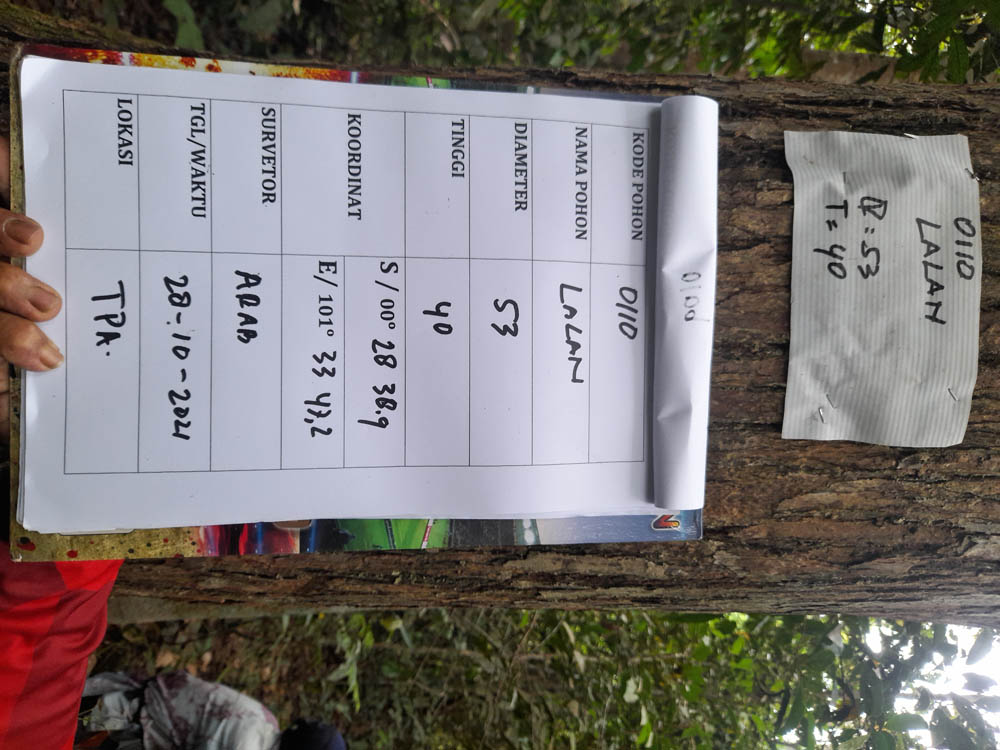 0110
LALAN
Ø = 53
T = 40
KODE POHON 0110
NAMA POHON LALAN
DIAMETER 53
TINGGI 40
KOORDINAT
S / 00° 28 38.9
E/ 101° 33 47,2
SURVETOR ARAB
TGL/WAKTU 28-10-2021
LOKASI TPA.